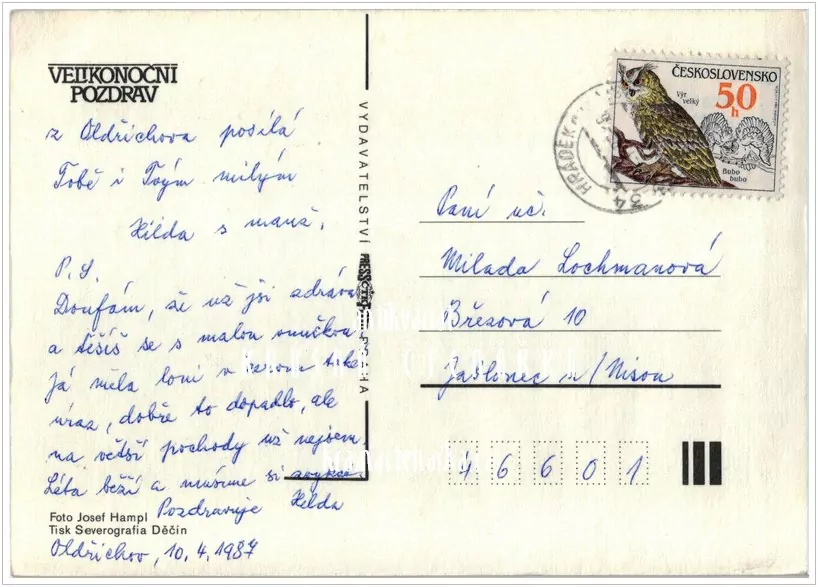 VELIKONOČNÍ
POZDRAV
z Oldřichova posílá
Tobě i Tvým milým
Hilda s manž.
P.S.
Doufám, že už jsi zdráva
a těšíš se s malou vnučkou
Já měla loni v také
úraz, dobře to dopadlo, ale
na větší pochody už nejsem.
Léta běží a musíme si
Pozdravuje Hilda
Foto Josef Hampl
Tisk Severografia Děčín
Oldřichov, 10. 4. 1987
VYDAVATELSTVÍ PRESSFOTO PRAHA
ČTK
HRÁDEK
34
ČESKOSLOVENSKO
50 h
Výr
velký
Bubo
bubo
Paní uč.
Milada Lochmanová
Březová 10
Jablonec n/Nisou
46601